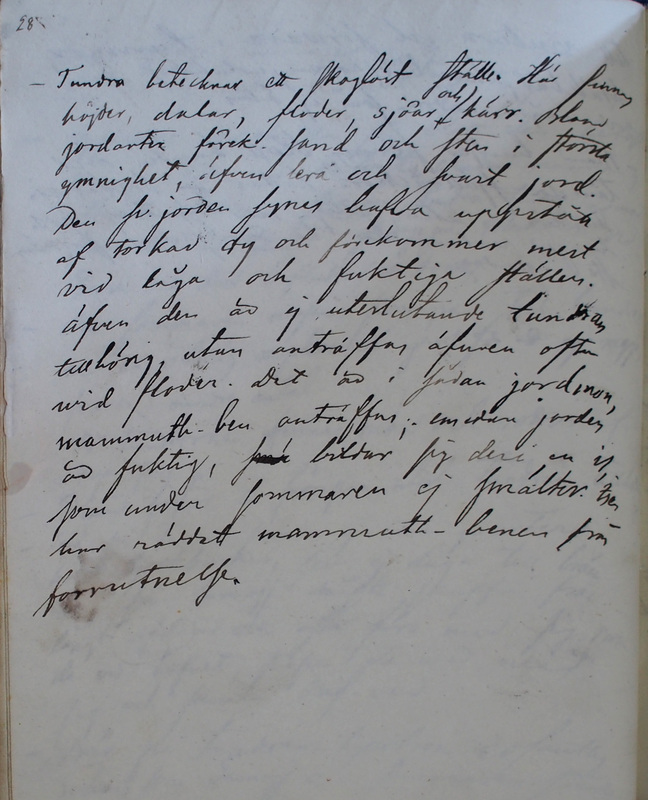 28
– Tundra betecknar ett skoglöst ställe. Här finnas
höjder, dalar, floder, sjöar och kärr. Bland
jordarter förek. sand och sten i största
ymnighet, äfven lera och svart jord.
Den sv. jorden synes hafva uppstått
af torkad dy och förekommer mest
vid låga och fuktiga ställen.
äfven den är ej uteslutande tundran
tillhörig, utan anträffas äfven ofta
vid floder. Det är i sådan jordmon,
mammuth-ben anträffas; emedan jorden
är fuktig, bildar sig deri en is,
som under sommaren ej smälter.
har räddat mammuth-benen från
förrutnelse.